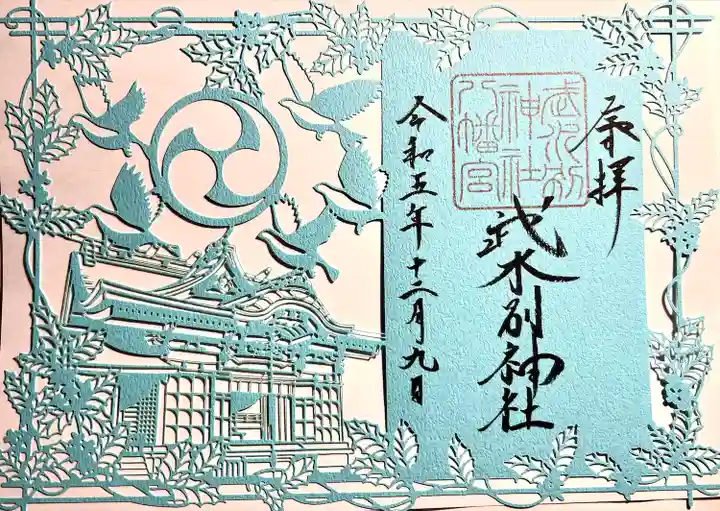 奉拝
武水別神社
武水別
神社
八幡宮
令和五年十二月九日